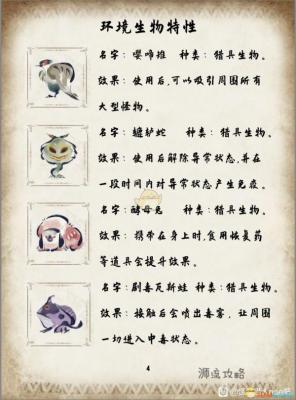 环境生物特性
名字:嘤啼推 种类:猎具生物。
效果:使用后,可以吸引周围所有
大型怪物。
名字:魑魅蛇 种类:猎具生物。
效果:使用后解除异常状态,并在
一段时间内对异常状态产生免疫。
名字:酵母兔 种类:猎具生物。
效果:携带在身上时,食用恢复药
等道具会提升效果。
名字:剧毒瓦斯蛙 种类:猎具生物。
效果:接触后会喷出毒雾,让周围
一切进入中毒状态。
4
狮流攻略